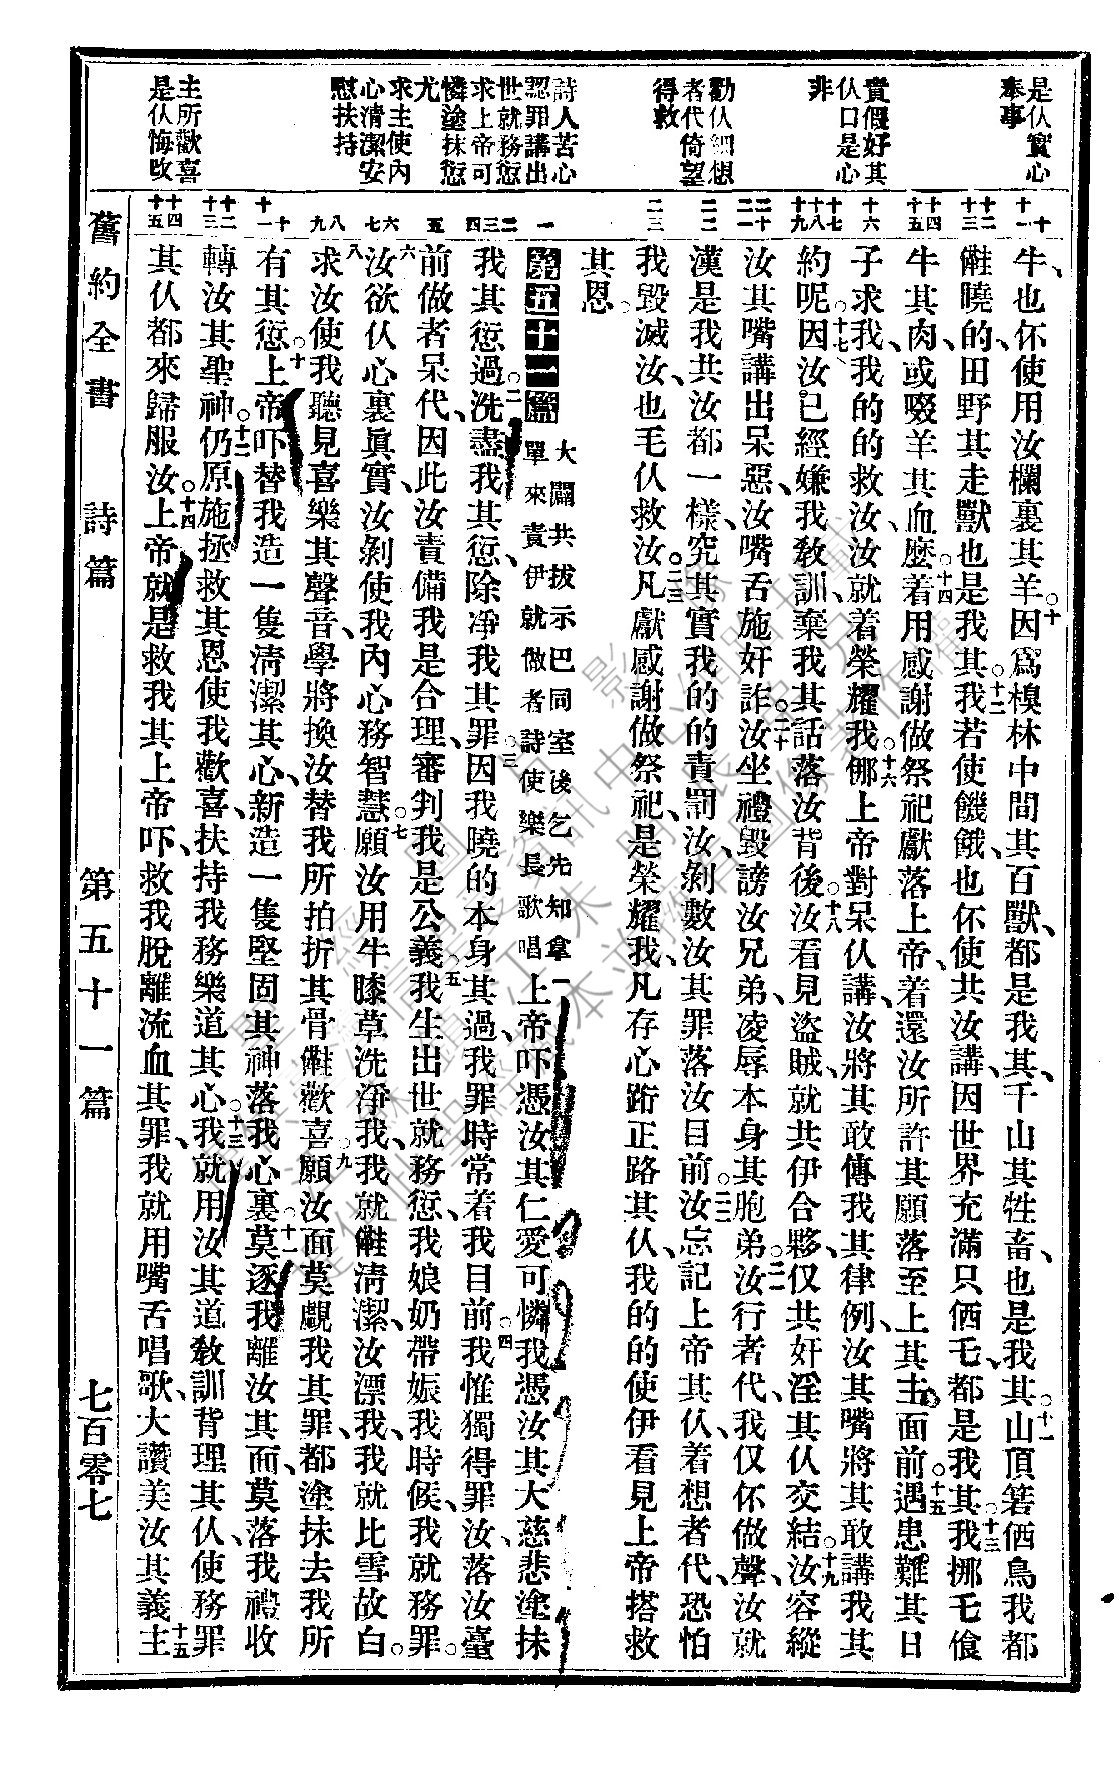 是仫實心
奉事
責假好其
仫口是心
非
勸仫細想
者代倚望
得救
詩人苦心
認罪講出
世就務愆
求上帝可
憐塗抹愆
尤
求主使內
心清潔安
慰扶持
主所歡喜
是仫悔改
牛、也伓使用汝欄裏其羊。十因為樕林中間其百獸、都是我其、千山其牲畜、也是我其。十一山頂箬俹鳥我都
𣍐曉的、田野其走獸也是我其。十二我若使饑餓、也伓使共汝講、因世界充滿只俹乇、都是我其。十三我挪乇飡
牛其肉、或啜羊其血麼。十四着用感謝做祭祀獻落上帝、着還汝所許其願落至上其主面前。十五遇患難其日
子求我、我的的救汝、汝就着榮耀我。十六㑚上帝對呆仫講、汝將其敢傳我其律例、汝其嘴將其敢講我其
約呢。十七因汝已經嫌我敎訓、棄我其話落汝背後。十八汝看見盜賊、就共伊合夥、仅共奸淫其仫交結。十九汝容縱
汝其嘴講出呆惡、汝嘴舌施奸詐。二十汝坐禮毀謗汝兄弟、凌辱本身其胞弟。二一汝行者代、我仅伓做聲、汝就
漢是我共汝都一樣、究其實我的的責罰汝、剝數汝其罪落汝目前。二二汝忘記上帝其仫、着想者代、恐怕
我毀滅汝、也毛仫救汝。二三凡獻感謝做祭祀、是榮耀我、凡存心跡正路其仫、我的的使伊看見上帝搭救
其恩。
第五十一篇
大闢共拔示巴同室後乞先知拿
單來責伊就倣者詩使樂長歌唱
一上帝吓、憑汝其仁愛可憐我、憑汝其大慈悲塗抹
我其愆過。二洗盡我其愆、除凈我其罪。三因我曉的本身其過、我罪時常着我目前。四我惟獨得罪汝、落汝臺
前做者呆代、因此汝責備我是合理、審判我是公義。五我生出世就務愆、我娘奶帶娠我時候、我就務罪。
六汝欲仫心裏眞實、汝剝使我內心務智慧。七願汝用牛膝草洗凈我、我就𣍐清潔、汝漂我、我就比雪故白。
八求汝使我聽見喜樂其聲音、學將換汝替我所拍折其骨𣍐歡喜。九願汝面莫覷我其罪、都塗抹去我所
有其愆。十上帝吓、替我造一隻清潔其心、新造一隻堅固其神落我心裏。十一莫逐我離汝其面、莫落我禮收
轉汝其聖神。十二仍原施拯救其恩使我歡喜、扶持我務樂道其心。十三我就用汝其道敎訓背理其仫、使務罪
其仫都來歸服汝。十四上帝、就是救我其上帝吓、救我脫離流血其罪、我就用嘴舌唱歌、大讚美汝其義。十五主
舊約全書 詩篇 第五十一篇 七百零七